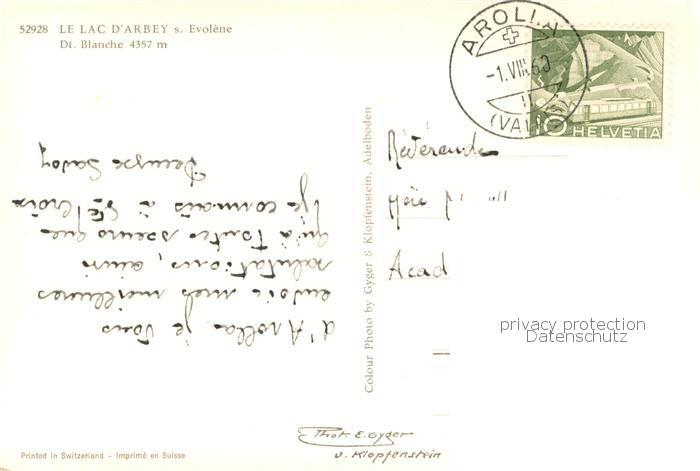 52928 LE LAC D'ARBEY s. Evolène
Dt. Blanche 4357 m
d'Arolla je vous
envoie mes meilleures
salutations, ainsi
qu'à toutes soeurs que
je connais à Ste Croix
Savoy
Colour Photo by Gyger & Klopfenstein, Adelboden
AROLLA
-1.VIII.60
(VALAIS)
10 HELVETIA
Révérende
Mère
Acad
privacy protection
Datenschutz
Phot. E. Gyger
u. Klopfenstein
Printed in Switzerland - Imprimé en Suisse